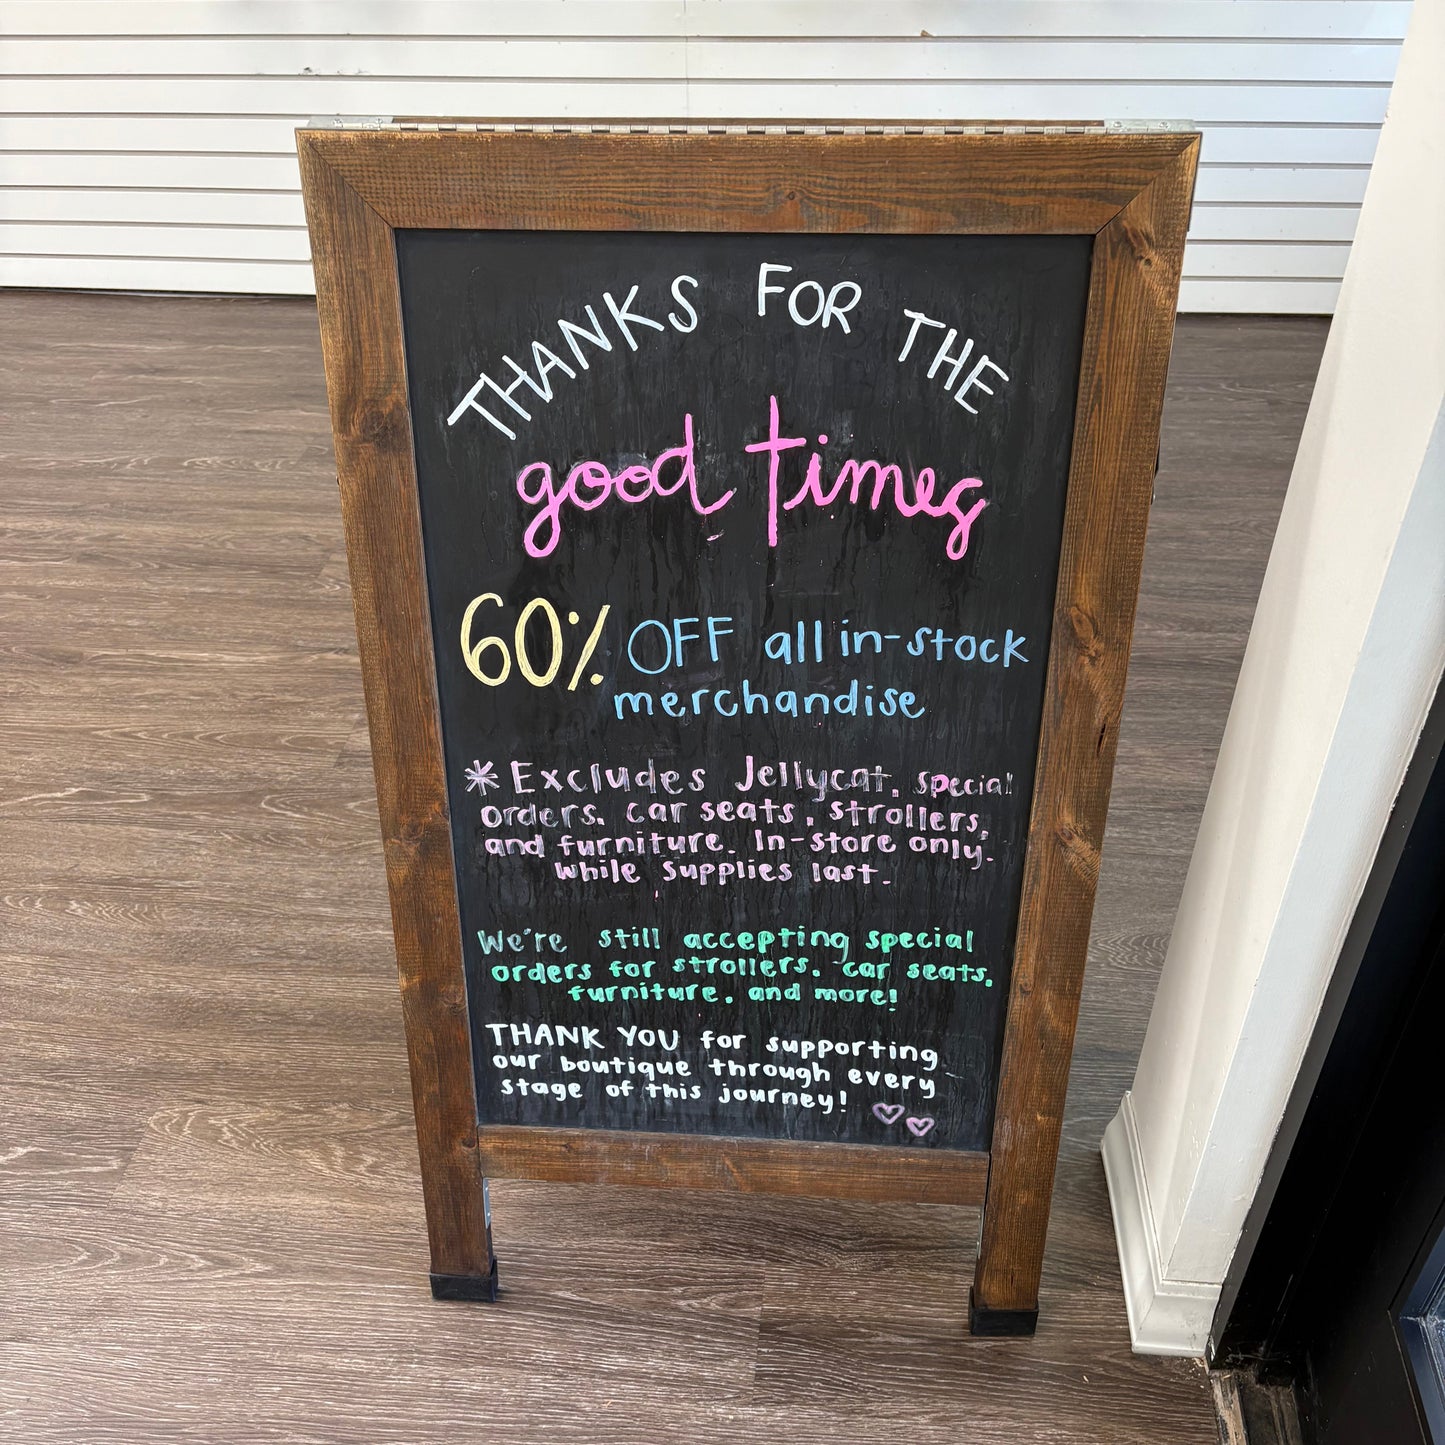 THANKS FOR THE
good times
60% OFF all in-stock
merchandise
* Excludes Jellycat, special
orders, car seats, strollers,
and furniture. In-store only.
While supplies last.
We're still accepting special
orders for strollers, car seats,
furniture, and more!
THANK YOU for supporting
our boutique through every
stage of this journey!